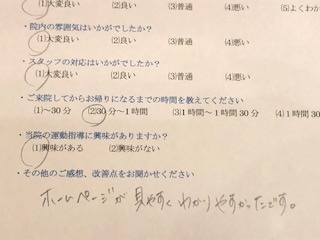 (1)大変良い (2)良い (3)普通 (4)悪い (5)よくわか
・院内の雰囲気はいかがでしたか?
(1)大変良い (2)良い (3)普通 (4)悪い
・スタッフの対応はいかがでしたか?
(1)大変良い (2)良い (3)普通 (4)悪い
・ご来院してからお帰りになるまでの時間を教えてください
(1)~30分 (2)30分~1時間 (3)1時間~1時間30分 (4)1時間30
・当院の運動指導に興味がありますか?
(1)興味がある (2)興味がない
・その他のご感想、改善点をお聞かせください
ホームページが見やすくわかりやすかったです。